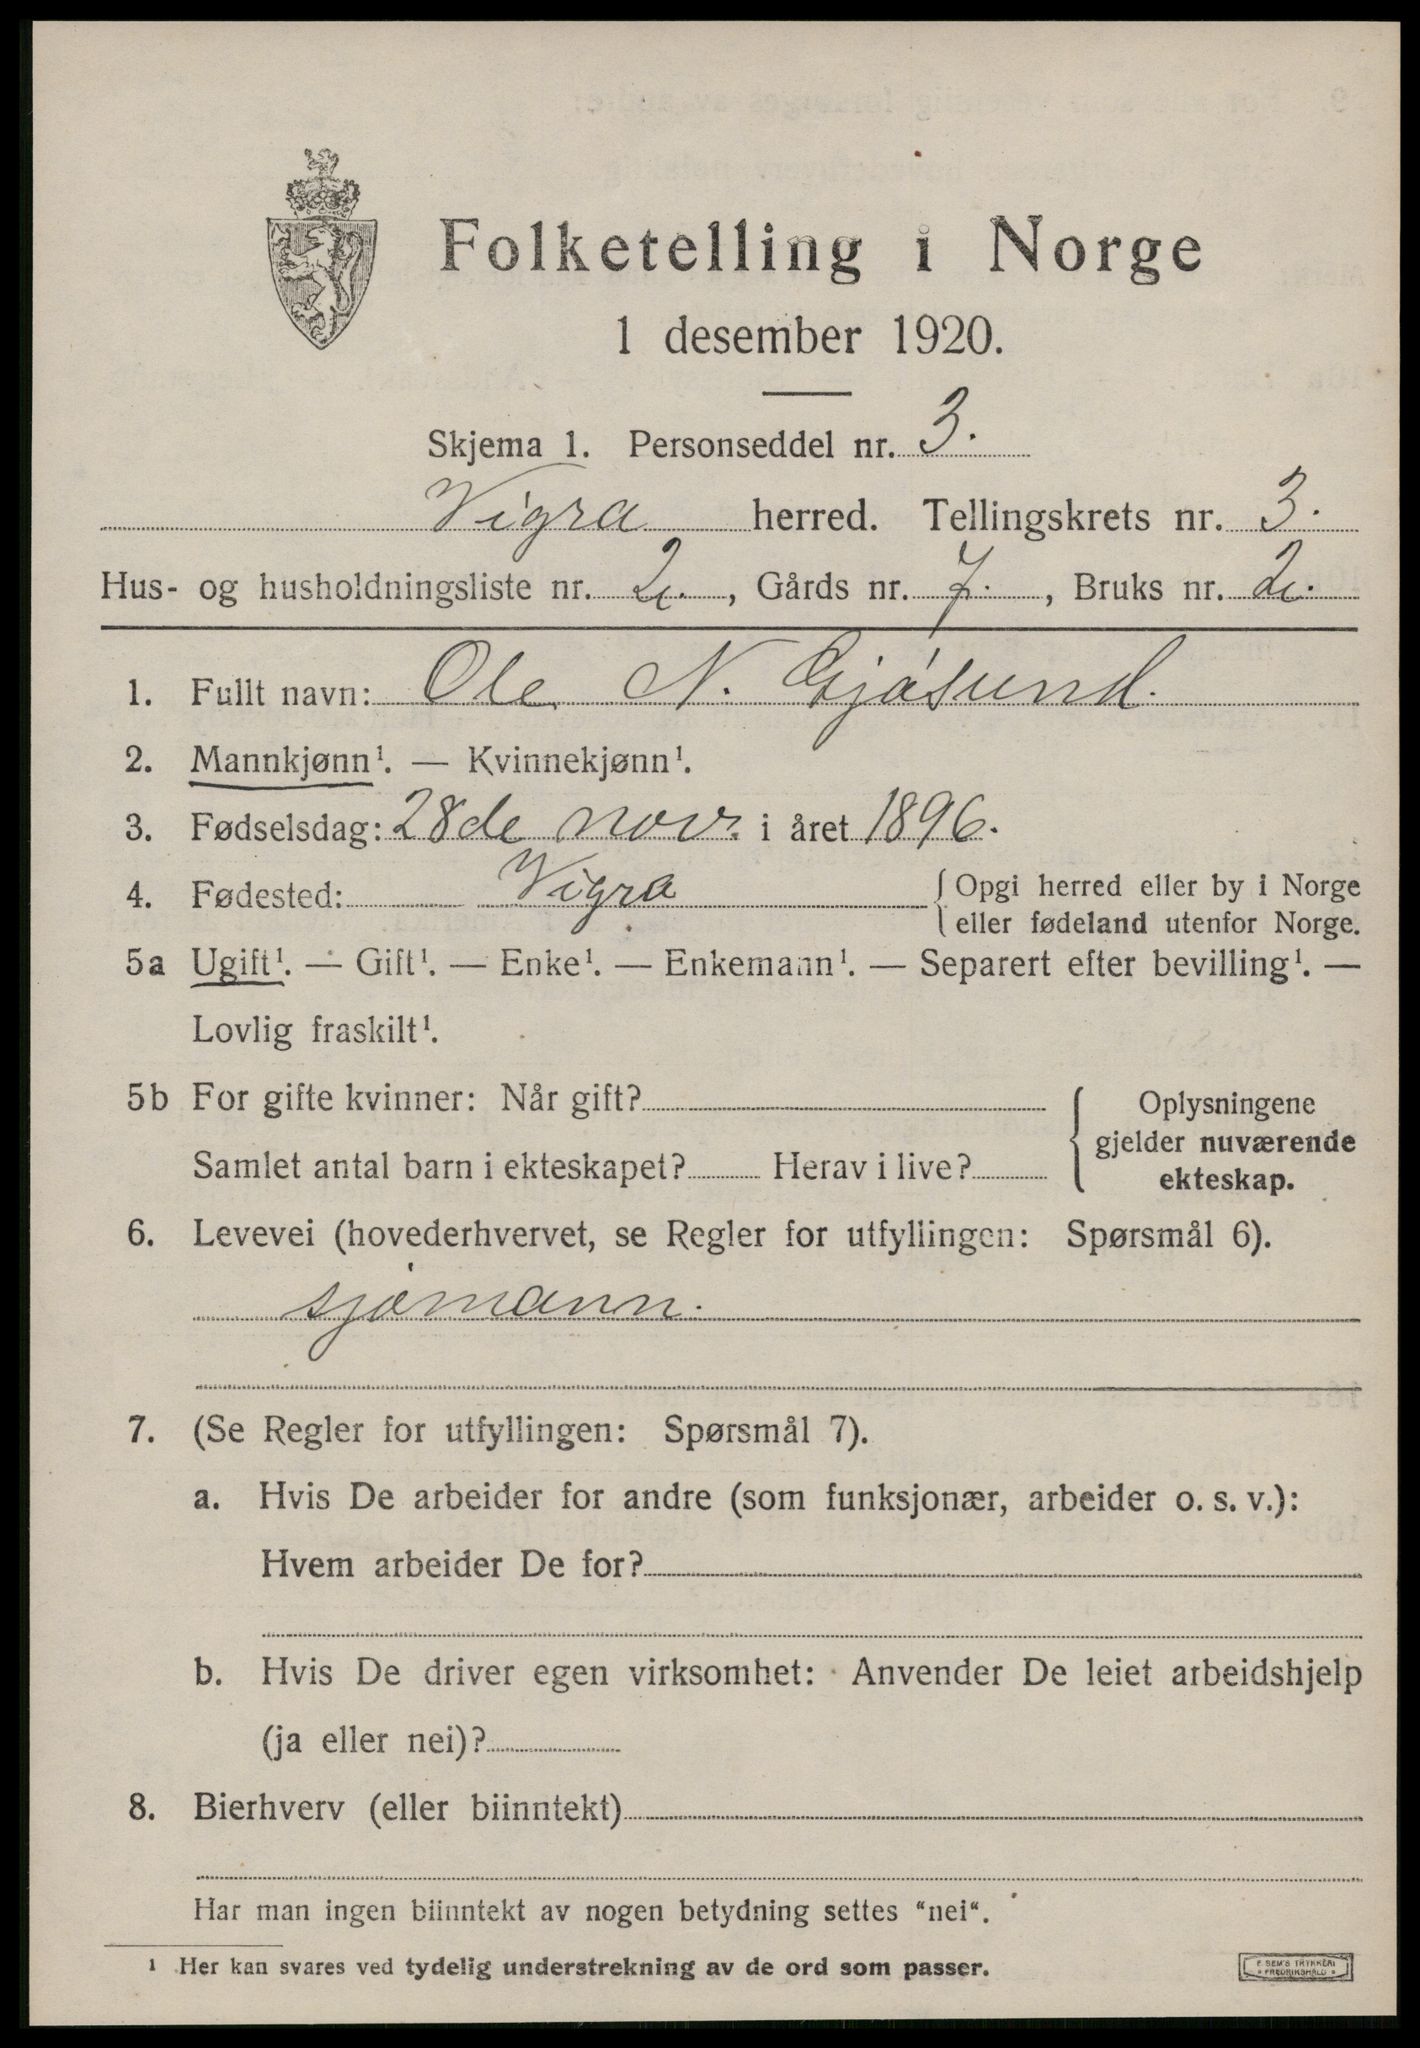 Folketelling i Norge
1 desember 1920.
Skjema 1. Personseddel nr. 3.
Vigra herred. Tellingskrets nr. 3.
Hus- og husholdningsliste nr. 2., Gårds nr. 7., Bruks nr. 2.
1. Fullt navn: Ole N. Gjøsund.
2. Mannkjønn¹. — Kvinnekjønn¹.
3. Fødselsdag: 28de nov. i året 1896.
4. Fødested: Vigra { Opgi herred eller by i Norge
eller fødeland utenfor Norge.
5a Ugift¹. — Gift¹. — Enke¹. — Enkemann¹. — Separert efter bevilling¹. —
Lovlig fraskilt¹.
5b For gifte kvinner: Når gift? { Oplysningene
gjelder nuværende
Samlet antal barn i ekteskapet? Herav i live? ekteskap.
6. Levevei (hovederhvervet, se Regler for utfyllingen: Spørsmål 6).
sjømann.
7. (Se Regler for utfyllingen: Spørsmål 7).
a. Hvis De arbeider for andre (som funksjonær, arbeider o. s. v.):
Hvem arbeider De for?
b. Hvis De driver egen virksomhet: Anvender De leiet arbeidshjelp
(ja eller nei)?
8. Bierhverv (eller biinntekt)
Har man ingen biinntekt av nogen betydning settes "nei".
¹ Her kan svares ved tydelig understrekning av de ord som passer.
F. SEM'S TRYKKERI
FREDRIKSHALD